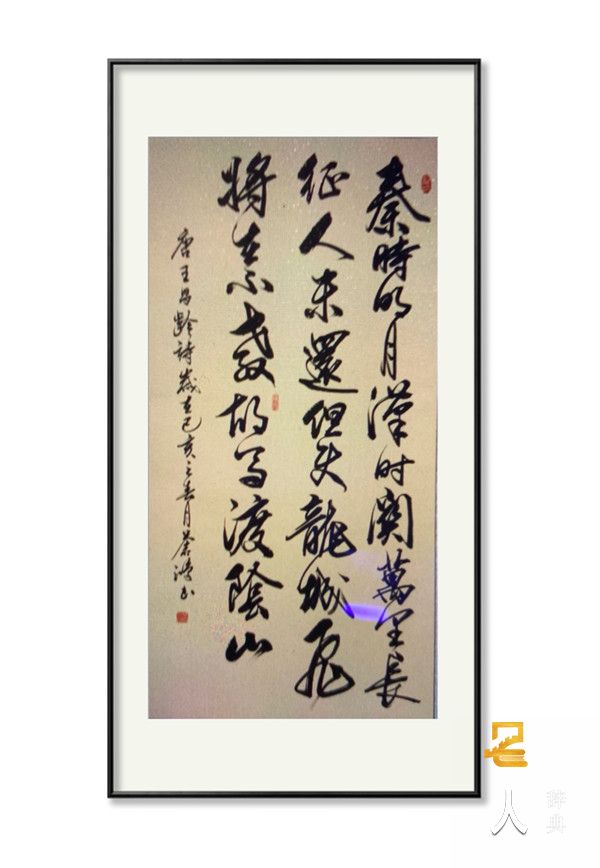 秦時明月漢时關萬里長
征人未還但使龍城飛
將在不教胡馬渡陰山
唐王昌齡詩歲在己亥之春月
人
辞典